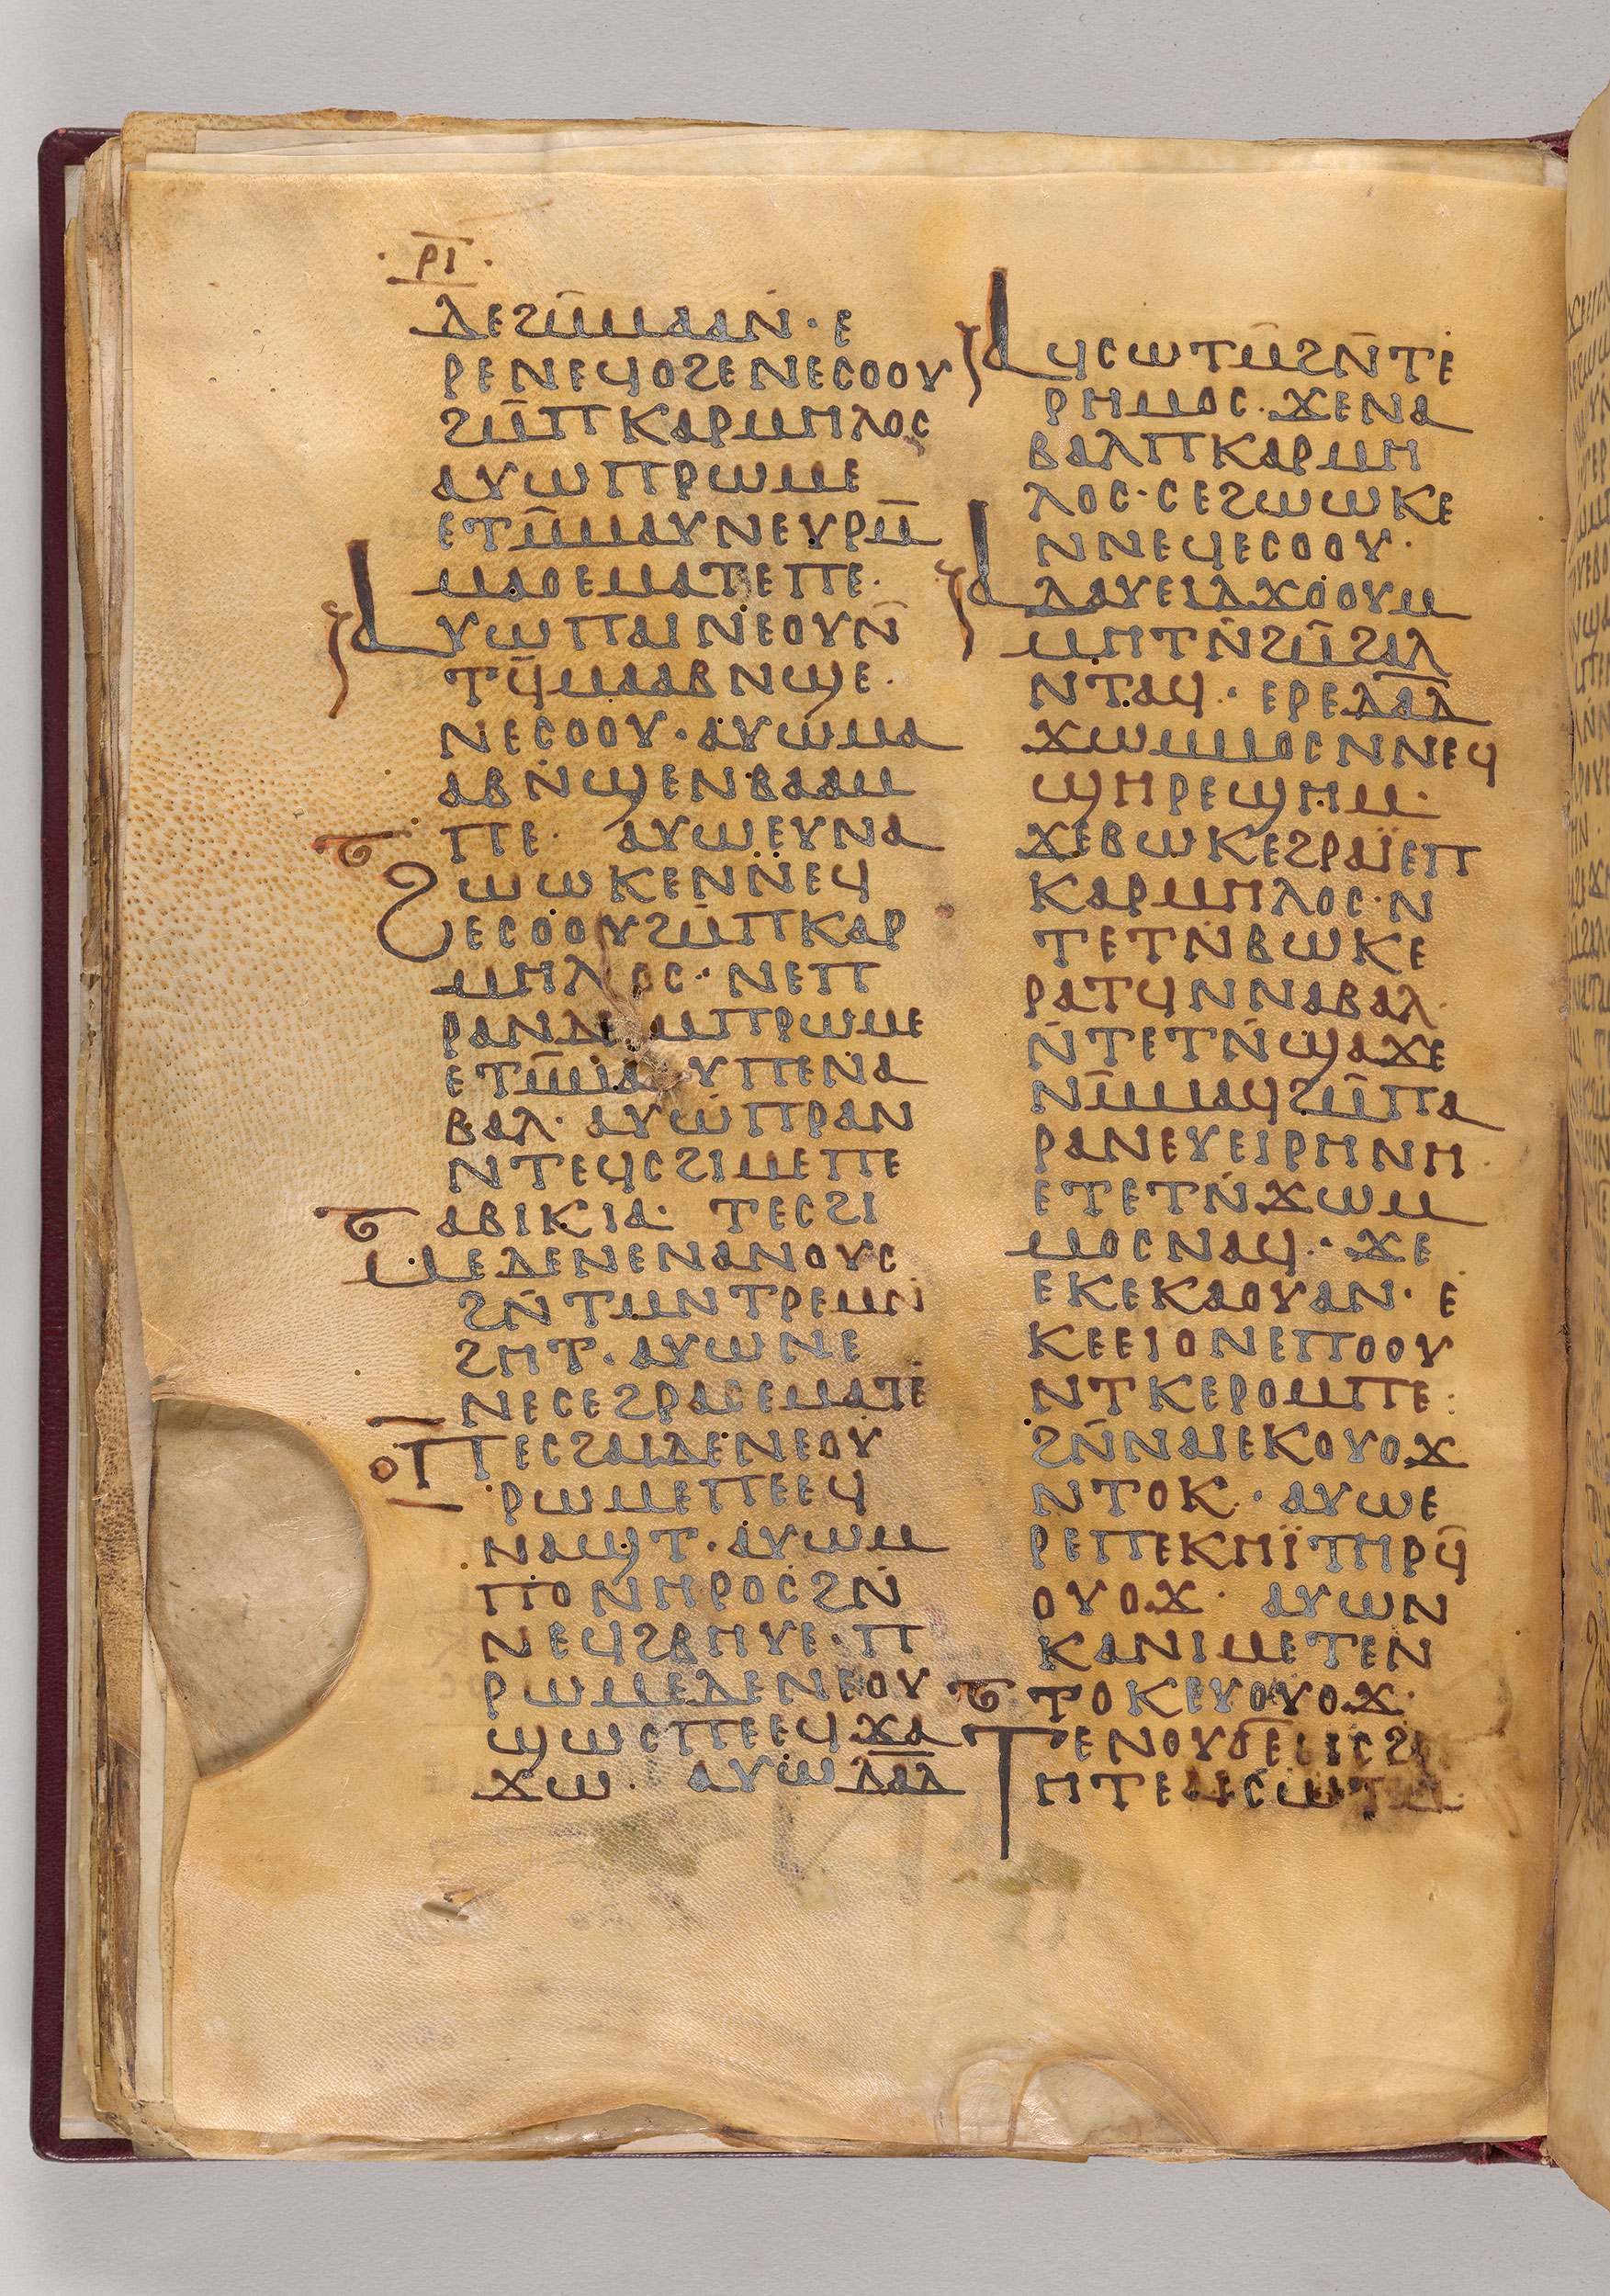 · ⲣ̅ⲓ̅ ·
ⲇⲉϩⲙ̅ⲙⲁⲁⲛ̇ · ⲉ
ⲣⲉⲛⲉϥⲟϩⲉⲛⲉⲥⲟⲟⲩ
ϩⲙ̅ⲡⲕⲁⲣⲙⲏⲗⲟⲥ
ⲁⲩⲱⲡⲣⲱⲙⲉ
ⲉⲧⲙ̅ⲙⲁⲩⲛⲉⲩⲣⲙ̅
ⲙⲁⲟⲉⲙⲁⲧⲉⲡⲉ ·
ⲁⲩⲱⲡⲁⲓⲛⲉⲟⲩⲛ̅
ⲧϥ̅ⲙⲁⲁⲃⲛϣⲉ ·
ⲛⲉⲥⲟⲟⲩ · ⲁⲩⲱⲙⲁ
ⲁⲃⲛ̇ϣⲉⲛⲃⲁⲁⲙ
ⲡⲉ · ⲁⲩⲱⲉⲩⲛⲁ
ϩⲱⲱⲕⲉⲛ̇ⲛⲉϥ
ⲉⲥⲟⲟⲩϩⲙ̅ⲡⲕⲁⲣ
ⲙⲏⲗⲟⲥ · ⲛⲉⲡ
ⲣⲁⲛⲇⲉⲙⲡⲣⲱⲙⲉ
ⲉⲧⲙ̅ⲙⲁⲩⲡⲉⲛⲁ
ⲃⲁⲗ · ⲁⲩⲱⲡⲣⲁⲛ
ⲛⲧⲉϥⲥϩⲓⲙⲉⲡⲉ
ⲁⲃⲓⲕⲓⲁ · ⲧⲉⲥϩⲓ
ⲙⲉⲇⲉⲛⲉⲛⲁⲛⲟⲩⲥ
ϩⲛ̇ⲧⲙⲛⲧⲣⲉⲙⲛ
ϩⲏⲧ · ⲁⲩⲱⲛⲉ
ⲛⲉⲥⲉϩⲣⲁⲥⲉⲙⲁⲧⲉ
ⲡⲉⲥϩⲁⲓⲇⲉⲛⲉⲟⲩ
ⲣⲱⲙⲉⲡⲉⲉϥ
ⲛⲁϣⲧ · ⲁⲩⲱⲙ
ⲡⲟⲛⲏⲣⲟⲥϩⲛ̇
ⲛⲉϥϩⲃⲏⲩⲉ · ⲡ
ⲣⲱⲙⲉⲇⲉⲛⲉⲟⲩ
ϣⲱⲥⲡⲉⲉϥϫⲁ
ϫⲱ · ⲁⲩⲱⲇ̅ⲁ̅ⲇ̅
ⲁϥⲥⲱⲧⲙ̅ϩⲛ̅ⲧⲉ
ⲣⲏⲙⲟⲥ · ϫⲉⲛⲁ
ⲃⲁⲗⲡⲕⲁⲣⲙⲏ
ⲗⲟⲥ · ⲥⲉϩⲱⲱⲕⲉ
ⲛⲛⲉϥⲉⲥⲟⲟⲩ ·
ⲁⲇⲁⲩⲉⲓⲇϫⲟⲟⲩⲙ
ⲙⲏⲧⲛ̇ϩⲙ̅ϩⲁⲗ
ⲛⲧⲁϥ · ⲉⲣⲉⲇ̅ⲁ̅ⲇ̅
ϫⲱⲙⲙⲟⲥⲛⲛⲉϥ
ϣⲏⲣⲉϣⲏⲙ ·
ϫⲉⲃⲱⲕⲉϩⲣⲁⲓ̈ⲉⲡ
ⲕⲁⲣⲙⲏⲗⲟⲥ · ⲛ
ⲧⲉⲧⲛ̇ⲃⲱⲕⲉ
ⲣⲁⲧϥⲛⲛⲁⲃⲁⲗ ·
ⲛ̇ⲧⲉⲧⲛ̇ϣⲁϫⲉ
ⲛⲙ̅ⲙⲁϥϩⲙ̅ⲡⲁ
ⲣⲁⲛⲉⲩⲉⲓⲣⲏⲛⲏ ·
ⲉⲧⲉⲧⲛ̇ϫⲱⲙ
ⲙⲟⲥⲛⲁϥ · ϫⲉ
ⲉⲕⲉⲕⲁⲟⲩⲁⲛ · ⲉ
ⲕⲉⲉⲓⲟⲛⲉⲡⲟⲟⲩ
ⲛⲧⲕⲉⲣⲟⲙⲡⲉ ·
ϩⲛ̇ⲛⲁⲓⲉⲕⲟⲩⲟϫ
ⲛⲧⲟⲕ · ⲁⲩⲱⲉ
ⲣⲉⲡⲉⲕⲏⲓ̈ⲧⲏⲣϥ̅
ⲟⲩⲟϫ · ⲁⲩⲱⲛ
ⲕⲁⲛⲓⲙⲉⲧⲉⲛ
ⲧⲟⲕⲉⲩⲟⲩⲟϫ ·
ⲧⲉⲛⲟⲩϭⲉ
ⲏⲧⲉⲁⲓⲥⲱⲧⲙ